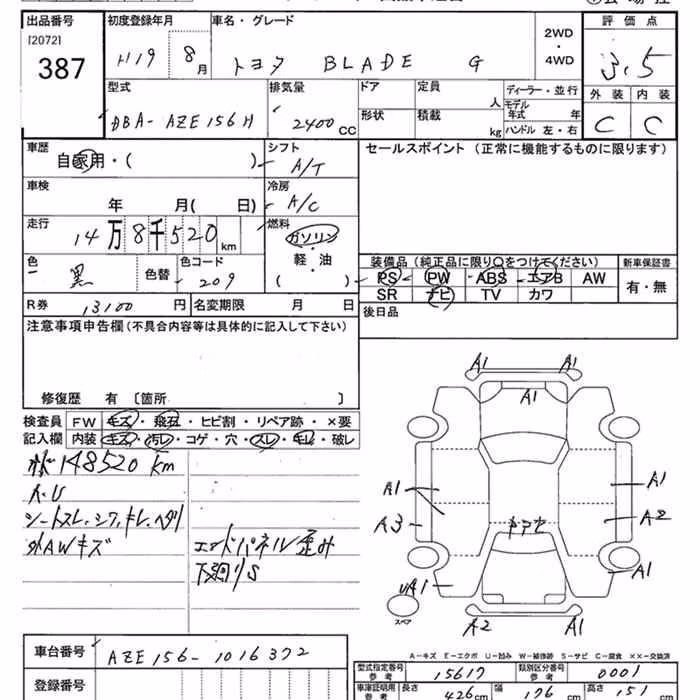 出品番号 初度登録年月 車名・グレード 評価点
[2072]
387 H19 8月 トヨタ BLADE G 2WD・4WD 3.5
型式 排気量 ドア 定員 人 ディーラー・並行 外装 内装
DBA-AZE156H 2400cc 形状 積載 kg モデル年式 年 C C
ハンドル 左・右
車歴 シフト セールスポイント (正常に機能するものに限ります)
自家用・( ) A/T
車検 冷房
年 月( 日) A/C
走行 燃料
14万8千520km ガソリン
軽・油
( )
色 色コード 装備品 (純正品に限り○をつけてください) 新車保証書
黒 色替 209 PS PW ABS エアB AW 有・無
SR ナビ TV カワ
R券 13100円 名変期限 月 日 後日品
注意事項申告欄 (不具合内容等は具体的に記入して下さい)
修復歴 有 〔箇所 〕
検査員 FW キズ・飛石・ヒビ割・リペア跡・×要
記入欄 内装 キズ・汚レ・コゲ・穴・スレ・キレ・破レ
148520km
シートスレ、シワ、キレ、ヘタリ
外AWキズ エンドパネル歪み
下廻りS
A1 A1
A1
A1 A1
A3 A2
A1
A1
スペア
A2 A1
A-キズ E-エクボ U-凹み W-補修跡 S-サビ C-腐食 ××-交換済
車台番号 AZE156-1016372
登録番号
型式指定番号 参考 15617 類別区分番号 参考 0001
車庫証明用 参考 長さ 426cm 幅 176cm 高さ 151cm